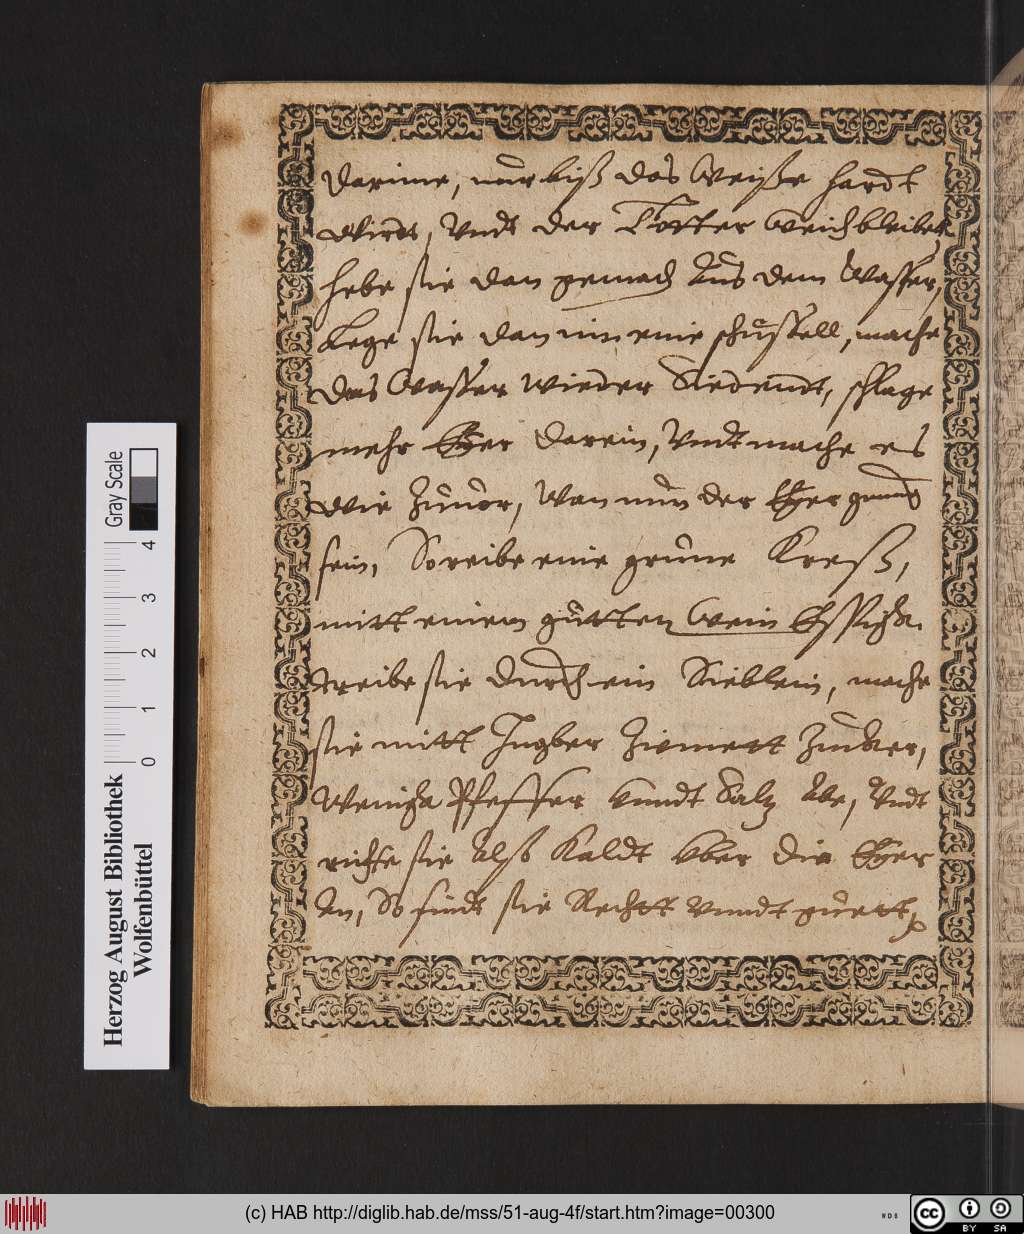 darinne, nur biß das Weiße hardt
wirtt, Vndt der Totter weich bleibet,
hebe sie dan gemach Aus dem Wasser,
Lege sie dan inn eine schüssell, mache
das Wasser wieder Siedendt, schlage
mehr Eÿer darein, Vndt mache es
wie Zuuor, Wan nun der Eÿer genug
sein, So reibe eine grüne Kreß,
mitt einem gutten Wein Essigk.
Treibe sie durch ein Sieblein, mache
sie mitt Ingber Zimmett Zucker,
Wenigk Pfeffer Vnndt Saltz Abe, Vndt
richte sie Alß Kaldt vber die Eÿer
An, So sindt sie Rechtt vnndt guett,
Herzog August Bibliothek
Wolfenbüttel
0 1 2 3 4
Gray Scale
(c) HAB http://diglib.hab.de/mss/51-aug-4f/start.htm?image=00300
WDB
cc BY SA